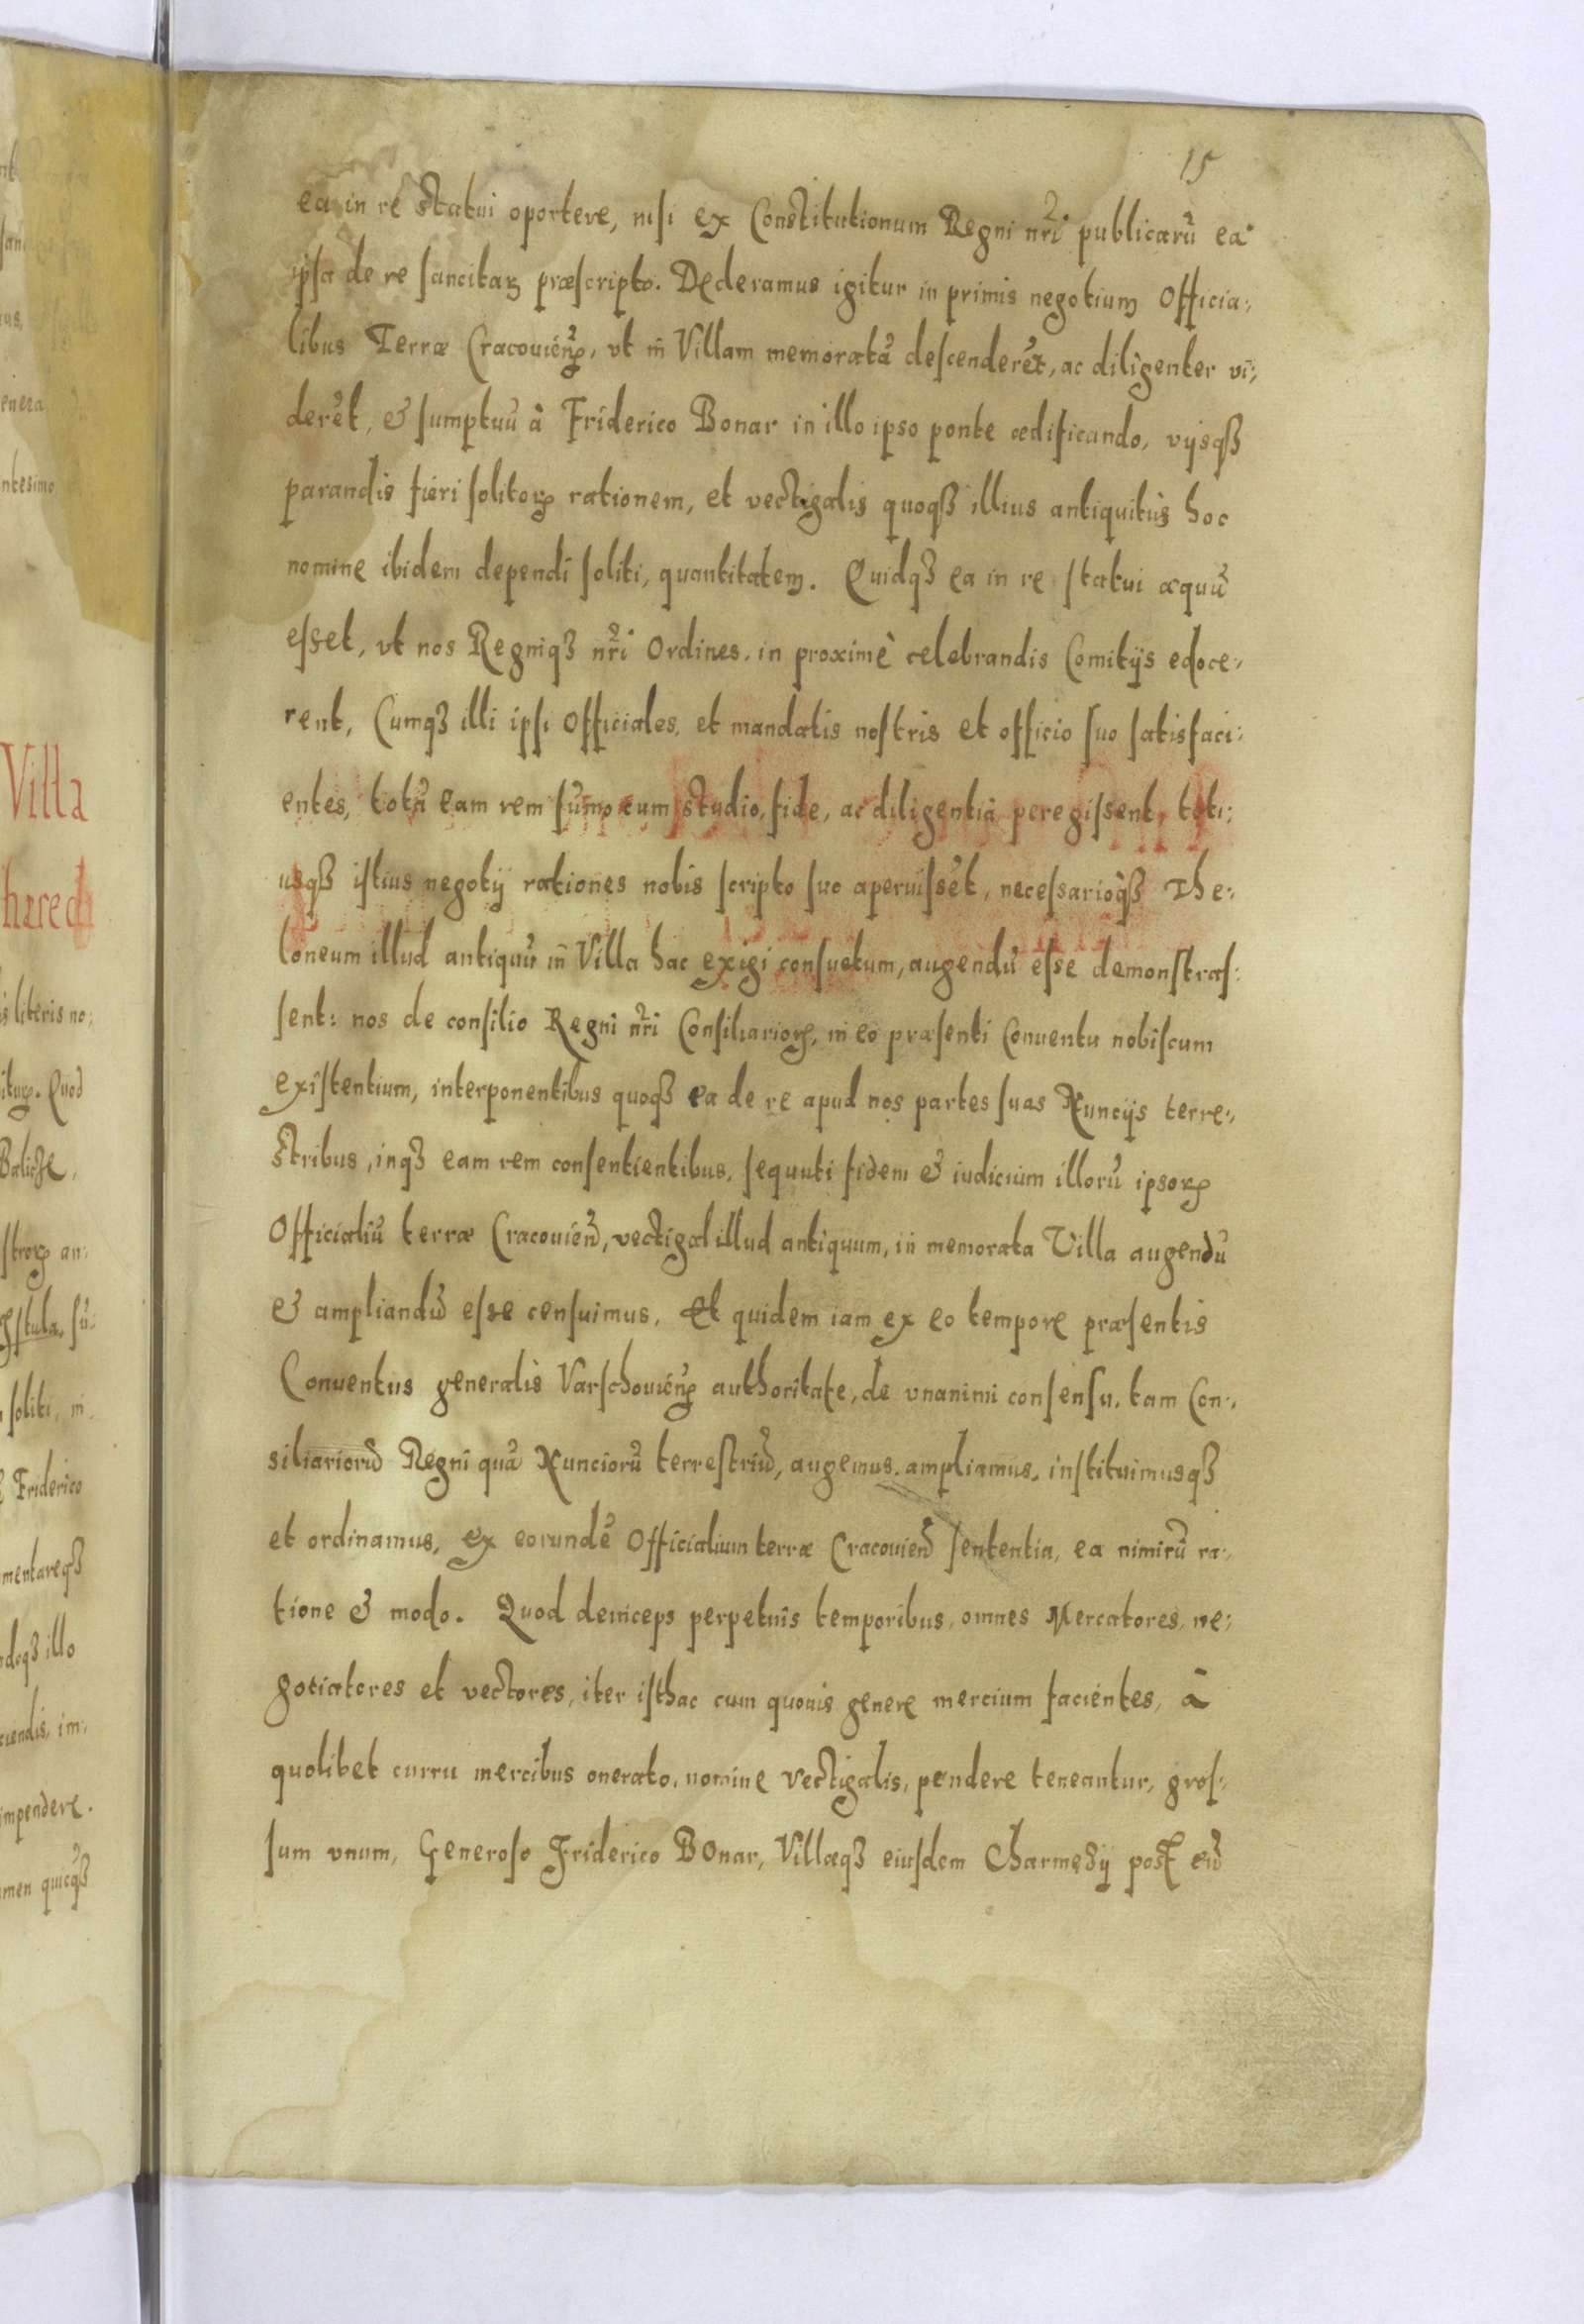 15
ea in re statui oportere, nisi ex Constitutionum Regni nr̃i publicarũ ea
ipsa de re sancitaꝝ præscripto. Dederamus igitur in primis negotium Officia:
libus Terræ Cracouień, vt in Villam memoratã descenderẽt, ac diligenter vi:
derẽt, & sumptuũ à Friderico Bonar in illo ipso ponte ædificando, vijsqꝫ
parandis fieri solitoꝝ rationem, et vectigalis quoqꝫ illius antiquitùs hoc
nomine ibidem dependi soliti, quantitatem. Quidqꝫ ea in re statui æquũ
esset, vt nos Regniqꝫ nr̃i Ordines, in proximè celebrandis Comitijs edoce:
rent, Cumqꝫ illi ipsi Officiales, et mandatis nostris et officio suo satisfaci:
entes, totã eam rem sum̃o cum studio, fide, ac diligentiâ peregissent, toti:
usqꝫ istius negotij rationes nobis scripto suo aperuissẽt, necessarioqꝫ The:
loneum illud antiquũ in Villa hac exigi consuetum, augendũ esse demonstras:
sent: nos de consilio Regni nr̃i Consiliarioꝝ, in eo præsenti Conuentu nobiscum
existentium, interponentibus quoqꝫ ea de re apud nos partes suas Nuncijs terre:
stribus, inqꝫ eam rem consentientibus, sequuti fidem & iudicium illorũ ipsoꝝ
Officialiũ terræ Cracouień, vectigal illud antiquum, in memorata Villa augendũ
& ampliandũ esse censuimus, Et quidem iam ex eo tempore præsentis
Conuentus generalis Varschouień authoritate, de vnanimi consensu, tam Con:
siliariorũ Regni quã Nunciorũ terrestriũ, augemus, ampliamus, instituimusqꝫ
et ordinamus, ex eorundẽ Officialium terræ Cracouień sententia, ea nimirũ ra:
tione & modo. Quod deinceps perpetuis temporibus, omnes Mercatores, ne:
gotiatores et vectores, iter isthac cum quouis genere mercium facientes, à
quolibet curru mercibus onerato, nomine vectigalis, pendere teneantur, gros:
sum vnum, Generoso Friderico Bonar, Villæqꝫ eiusdem Charmędzij post eũ